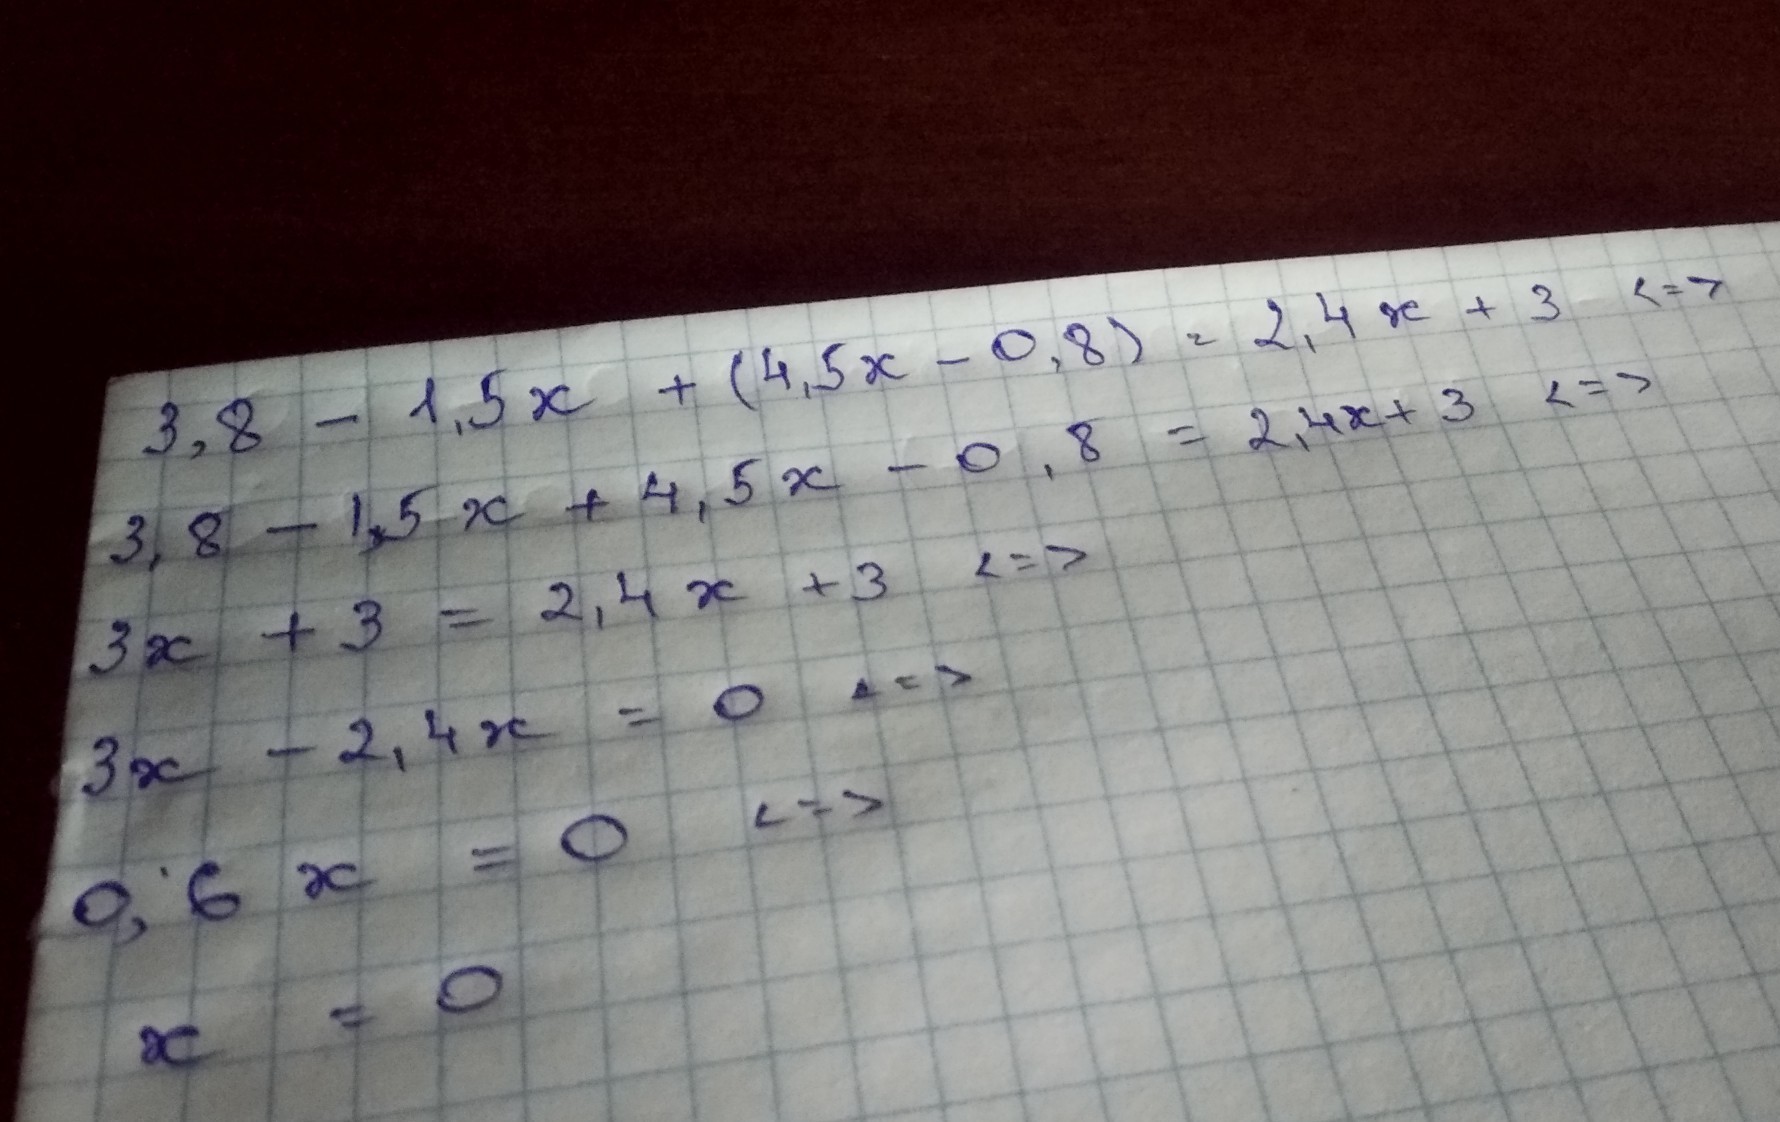 3,8 - 1,5x + (4,5x - 0,8) = 2,4x + 3 <=>
3,8 - 1,5x + 4,5x - 0,8 = 2,4x + 3 <=>
3x + 3 = 2,4x + 3 <=>
3x - 2,4x = 0 <=>
0,6x = 0 <=>
x = 0